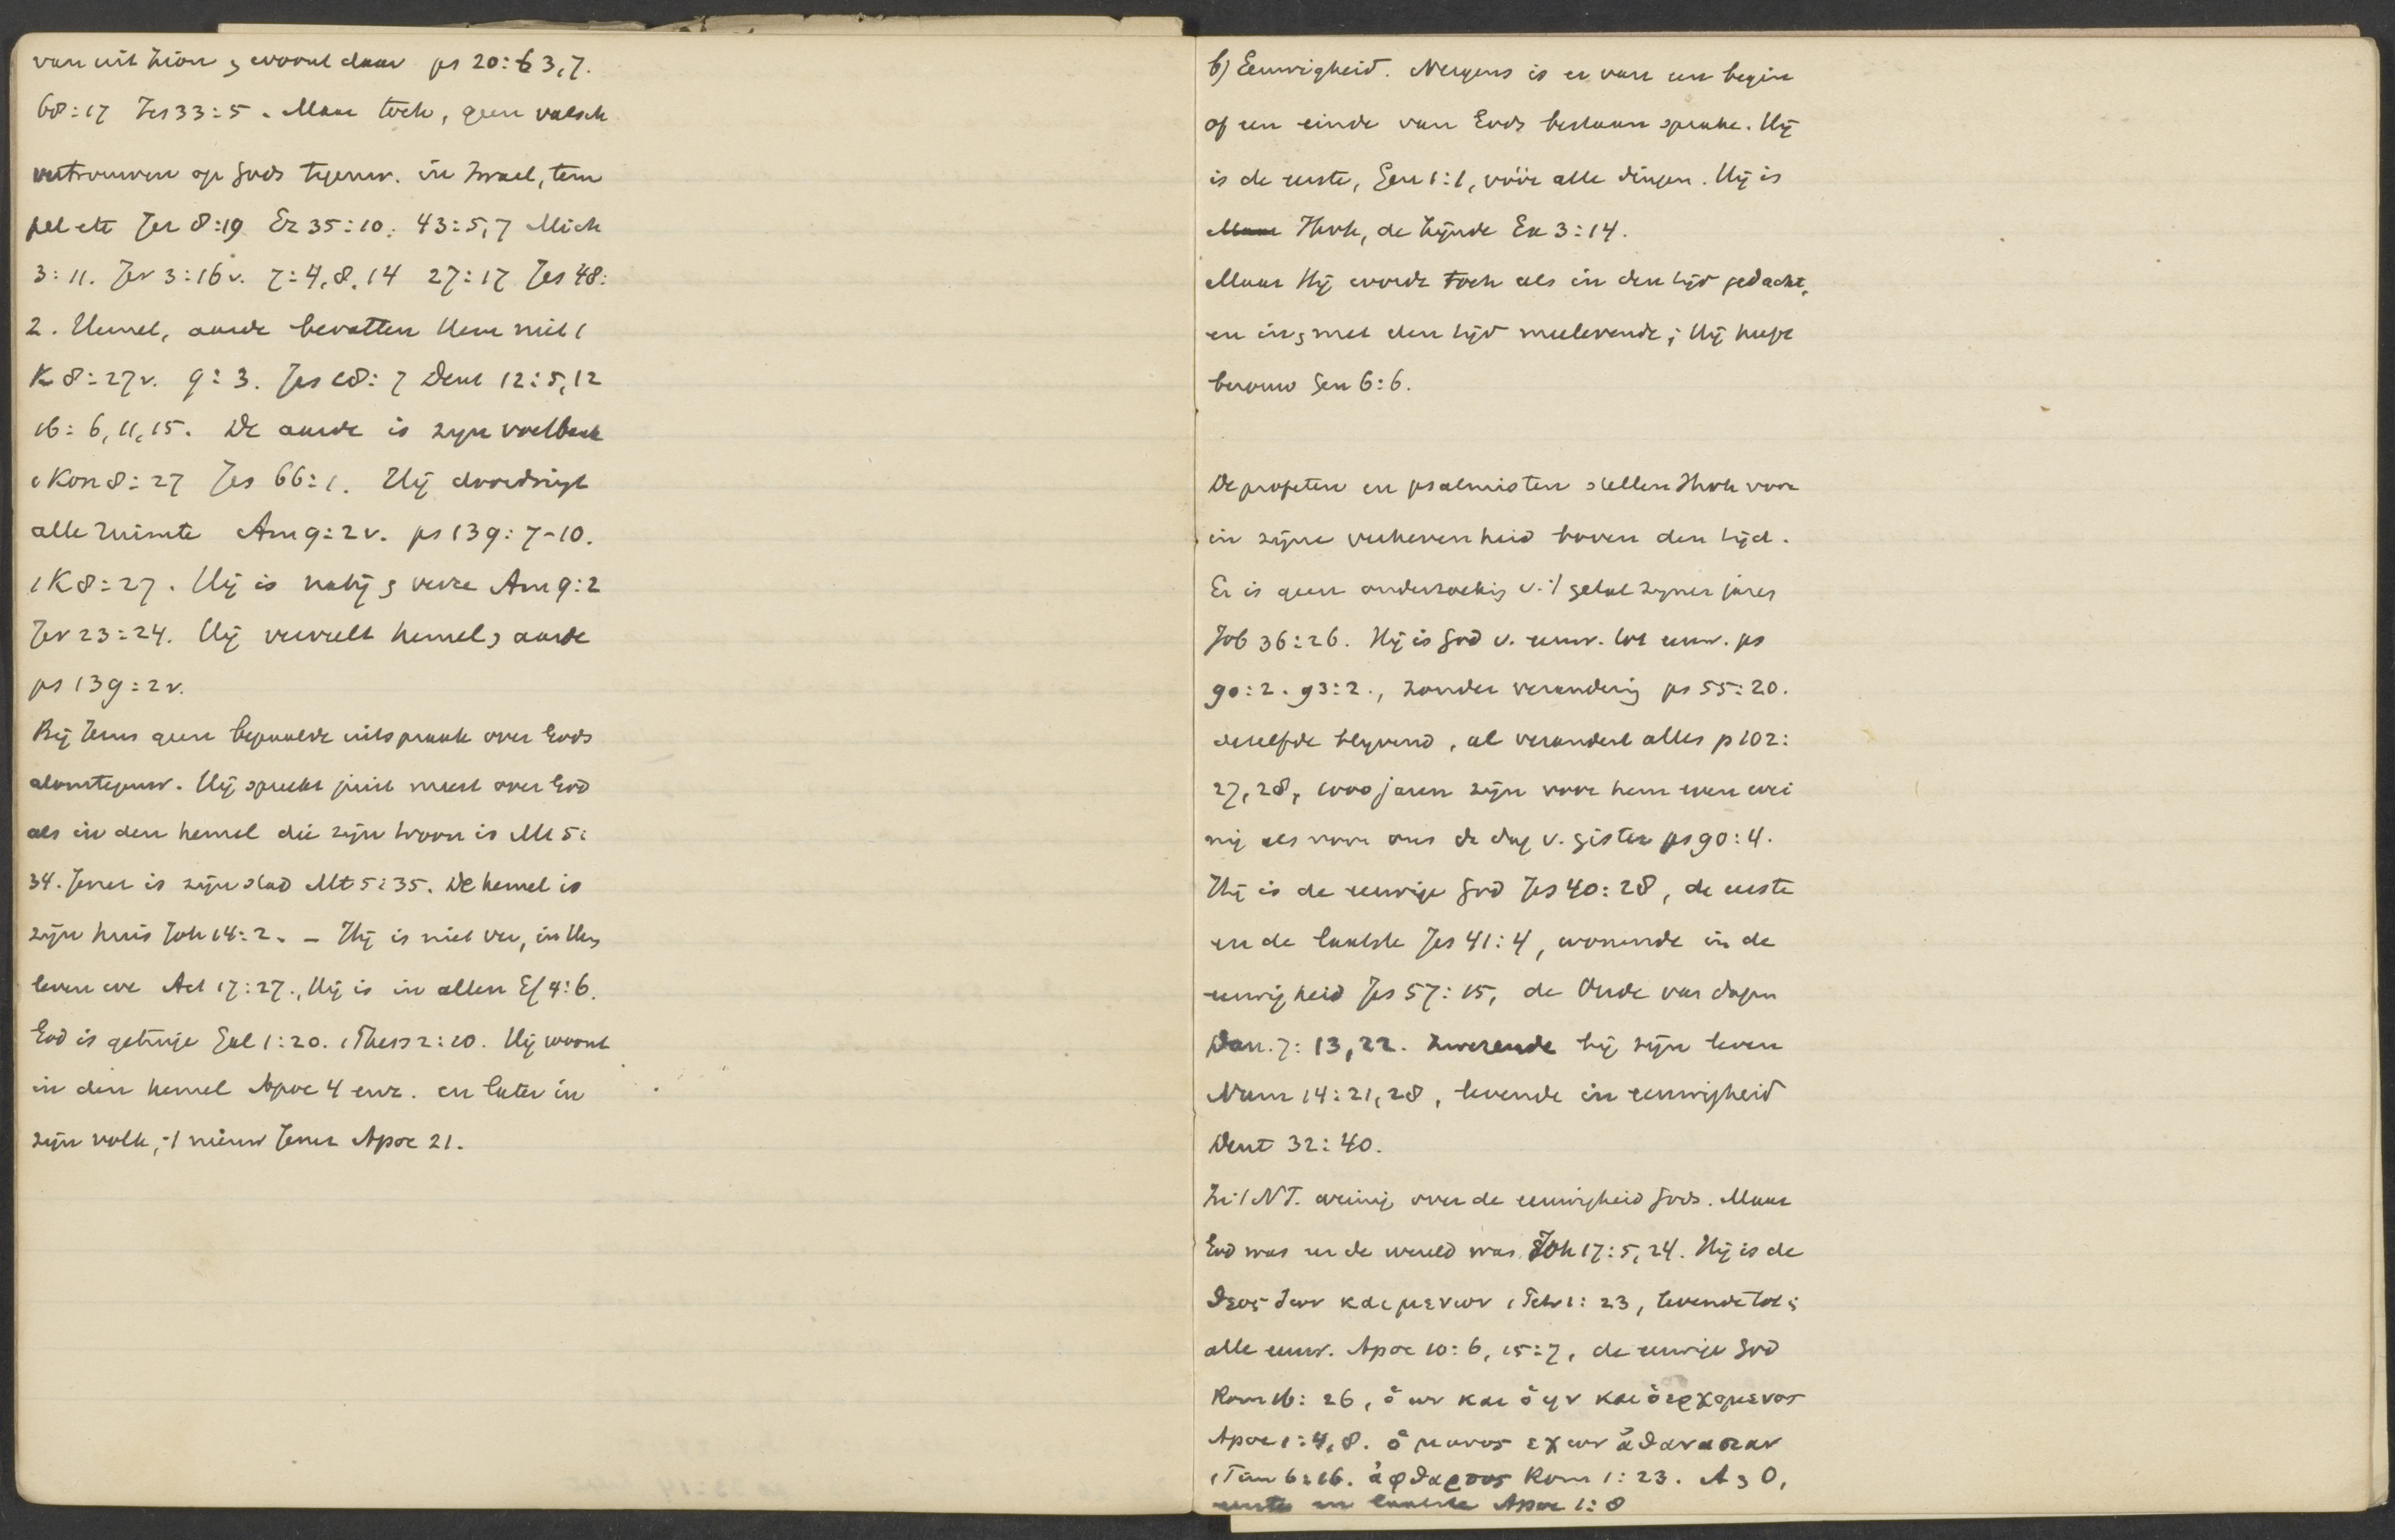 van uit Zion & woont daar ps 20:3,7.
68:17 Jes 33:5. Maar toch, geen valsch
vertrouwen op Gods tegenw. in Israel, tem
pel etc Jer 8:19 Ez 35:10. 43:5,7 Mich
3:11. Jer 3:16v. 7:4,8,14 27:17 Jes 48:
2. Hemel, aarde bevatten Hem niet 1
K 8:27v. 9:3. Jes 18:7 Deut 12:5,12
16:6,11,15. De aarde is zijn voetbank
1 Kon 8:27 Jes 66:1. Hij doordringt
alle ruimte Am 9:2v. ps 139:7-10.
1 K 8:27. Hij is nabij & verre Am 9:2
Jer 23:24. Hij vervult hemel & aarde
ps 139:2v.
Bij Jezus geen bepaalde uitspraak over Gods
alomtegenw. Hij spreekt juist meest over God
als in den hemel die zijn troon is Mt 5:
34. Jeruz is zijn stad Mt 5:35. De hemel is
zijn huis Joh 14:2. – Hij is niet ver, in Hem
leven we Act 17:27., Hij is in allen Ef 4:6.
God is getuige Gal 1:20. 1 Thess 2:10. Hij woont
in den hemel Apoc 4 enz. en later in
zijn volk, 't nieuw Jeruz Apoc 21.
b) Eeuwigheid. Nergens is er van een begin
of een einde van Gods bestaan sprake. Hij
is de eerste, Gen 1:1, vóór alle dingen. Hij is
Maar Jhvh, de Zijnde Ex 3:14.
Maar Hij wordt toch als in den tijd gedacht,
en in & met den tijd meelevende; Hij heeft
berouw Gen 6:6.
De profeten en psalmisten stellen Jhvh voor
in zijne verhevenheid boven den tijd.
Er is geen onderzoeking v. 't getal zijner jaren
Job 36:26. Hij is God v. eeuw. tot eeuw. ps
90:2. 93:2., zonder verandering ps 55:20.
dezelfde blijvend, al verandert alles p 102:
27,28, 1000 jaren zijn voor hem even wei
nig als voor ons de dag v. gister ps 90:4.
Hij is de eeuwige God Jes 40:28, de eerste
en de laatste Jes 41:4, wonende in de
eeuwigheid Jes 57:15, de Oude van dagen
Dan. 7:13,22. Zwerende bij zijn leven
Num 14:21,28, levende in eeuwigheid
Deut 32:40.
In 't NT. weinig over de eeuwigheid Gods. Maar
God was eer de wereld was Joh 17:5,24. Hij is de
θεος ζων και μενων 1 Petr 1:23, levende tot in
alle eeuw. Apoc 10:6, 15:7, de eeuwige God
Rom 16:26, ὁ ων και ὁ ην και ὁ ερχομενος
Apoc 1:4,8. ὁ μονος εχων ἀθανασιαν
1 Tim 6:16. ἀφθαρτος Rom 1:23. A & O,
eerste en laatste Apoc 1:8